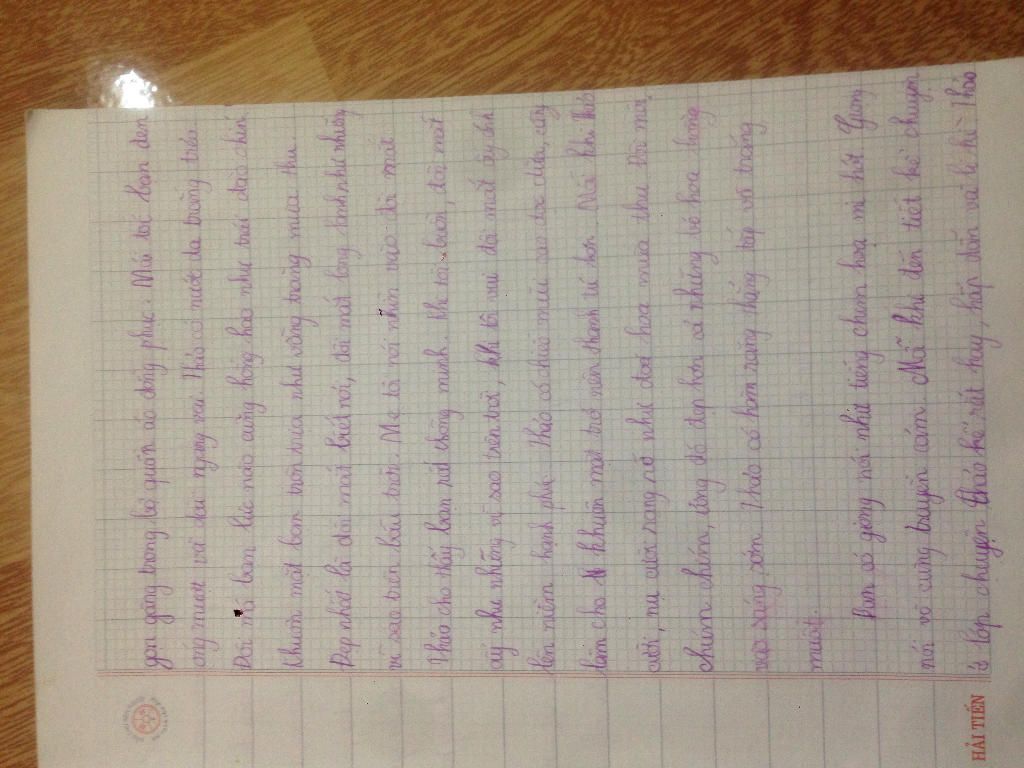 gọn gàng trong bộ quần áo đồng phục. Mái tóc bạn đen
óng mượt và dài ngang vai. Thảo có nước da trắng trẻo
Đôi má bạn lúc nào cũng hồng hào như trái đào chín
khuôn mặt bạn tròn trịa như vầng trăng mùa thu.
Đẹp nhất là đôi mắt biết nói, đôi mắt long lanh như những
vì sao trên bầu trời. Mẹ tôi nói nhìn vào đôi mắt
Thảo cho thấy bạn rất thông minh. khi tôi buồn, đôi mắt
ấy như những vì sao trên trời, khi tôi vui đôi mắt ấy ánh
lên niềm hạnh phúc. Thảo có chiếc mũi cao dọc dừa, càng
làm cho khuôn mặt trở nên thanh tú hơn. Nổi khi Thảo
cười, nụ cười rạng rỡ như đoá hoa mùa thu. Đôi môi
chúm chím, ửng đỏ đẹp hơn cả những bó hoa hồng
vào sáng sớm. Thảo có hàm răng thẳng tắp và trắng
muốt.
Bạn có giọng nói như tiếng chim hoạ mi hót. Giọng
nói vô cùng truyền cảm. Mỗi khi đến tiết kể chuyện
ở lớp chuyện Thảo kể rất hay, hấp dẫn và lẽ khi Thảo
HẢI TIẾN